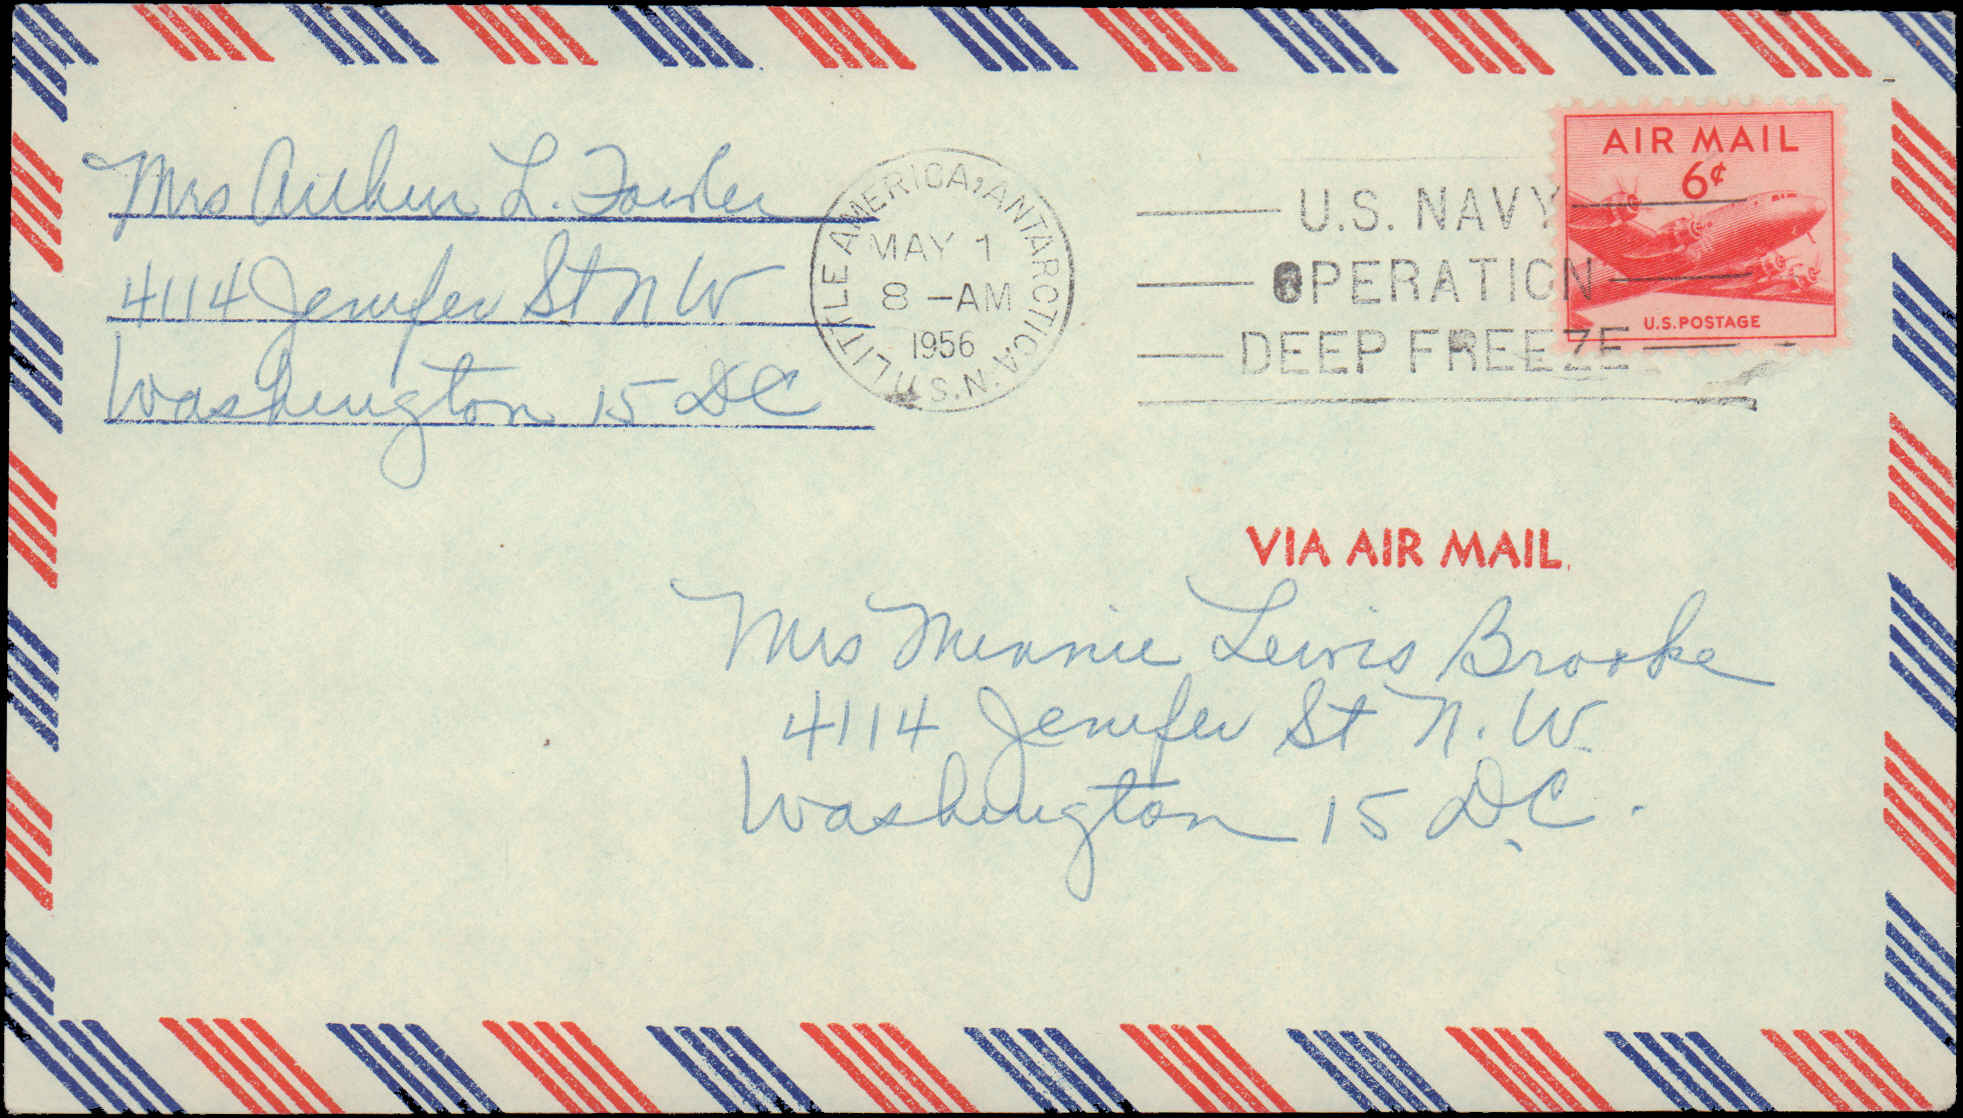 Mrs Arthur L. Fowler
4114 Jenifer St N W
Washington 15 DC
LITTLE AMERICA, ANTARCTICA. U.S.N.
MAY 1
8 -AM
1956
U.S. NAVY
OPERATION
DEEP FREEZE
AIR MAIL
6¢
U.S. POSTAGE
VIA AIR MAIL
Mrs Minnie Lewis Brooke
4114 Jenifer St N. W.
Washington 15 D.C.